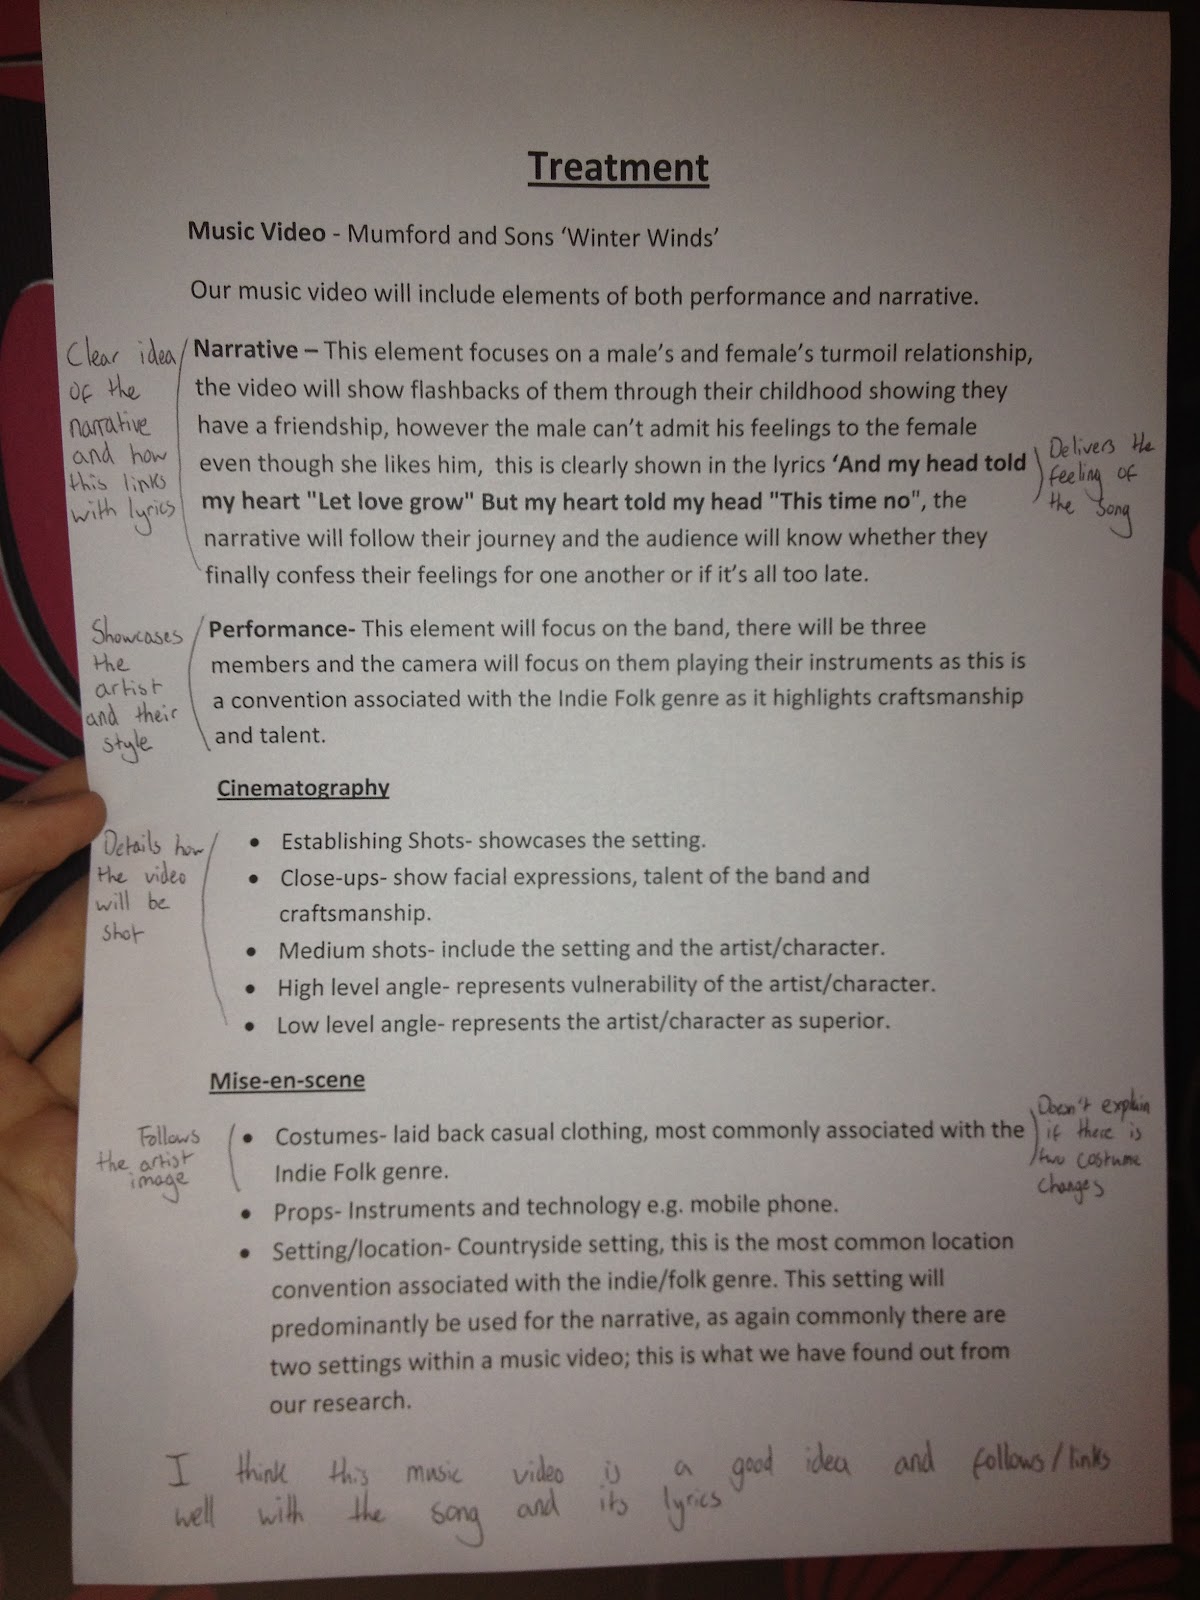 Treatment
Music Video - Mumford and Sons ‘Winter Winds’
Our music video will include elements of both performance and narrative.
Clear idea
of the
narrative
and how
this links
with lyrics
Narrative – This element focuses on a male’s and female’s turmoil relationship,
the video will show flashbacks of them through their childhood showing they
have a friendship, however the male can’t admit his feelings to the female
even though she likes him, this is clearly shown in the lyrics ‘And my head told
my heart "Let love grow" But my heart told my head "This time no", the
narrative will follow their journey and the audience will know whether they
finally confess their feelings for one another or if it’s all too late.
Delivers the
feeling of
the song
Showcases
the
artist
and their
style
Performance- This element will focus on the band, there will be three
members and the camera will focus on them playing their instruments as this is
a convention associated with the Indie Folk genre as it highlights craftsmanship
and talent.
Cinematography
Details how
the video
will be
shot
• Establishing Shots- showcases the setting.
• Close-ups- show facial expressions, talent of the band and
craftsmanship.
• Medium shots- include the setting and the artist/character.
• High level angle- represents vulnerability of the artist/character.
• Low level angle- represents the artist/character as superior.
Mise-en-scene
Follows
the artist
image
• Costumes- laid back casual clothing, most commonly associated with the
Indie Folk genre.
Doesn't explain
if there is
two costume
changes
• Props- Instruments and technology e.g. mobile phone.
• Setting/location- Countryside setting, this is the most common location
convention associated with the indie/folk genre. This setting will
predominantly be used for the narrative, as again commonly there are
two settings within a music video; this is what we have found out from
our research.
I think this music video is a good idea and follows/links
well with the song and its lyrics